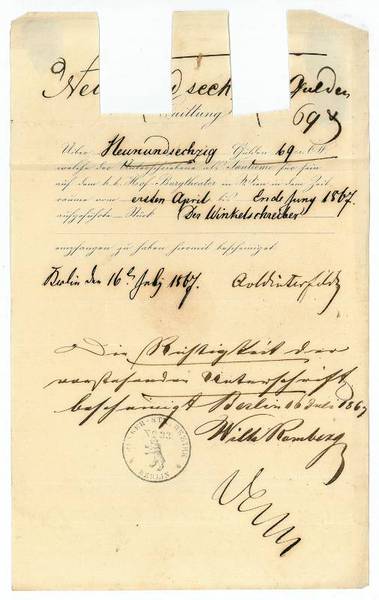 Neunundsechzig Gulden
Quittung 69
Ueber Neunundsechzig Gulden 69
welche der Unterzeichnete als Tantieme für sein
auf dem k. k. Hof-Burgtheater in Wien in dem Zeit-
raume vom ersten April bis Ende Juny 1867.
aufgeführte Stück Der Winkelschreiber
empfangen zu haben hiermit bescheiniget
Berlin den 16t July 1867. Adolf Winterfeld
Die Richtigkeit der
vorstehenden Unterschrift
bescheinigt Berlin 16 Juli 1867
Wilh Ramberg
BERLIN